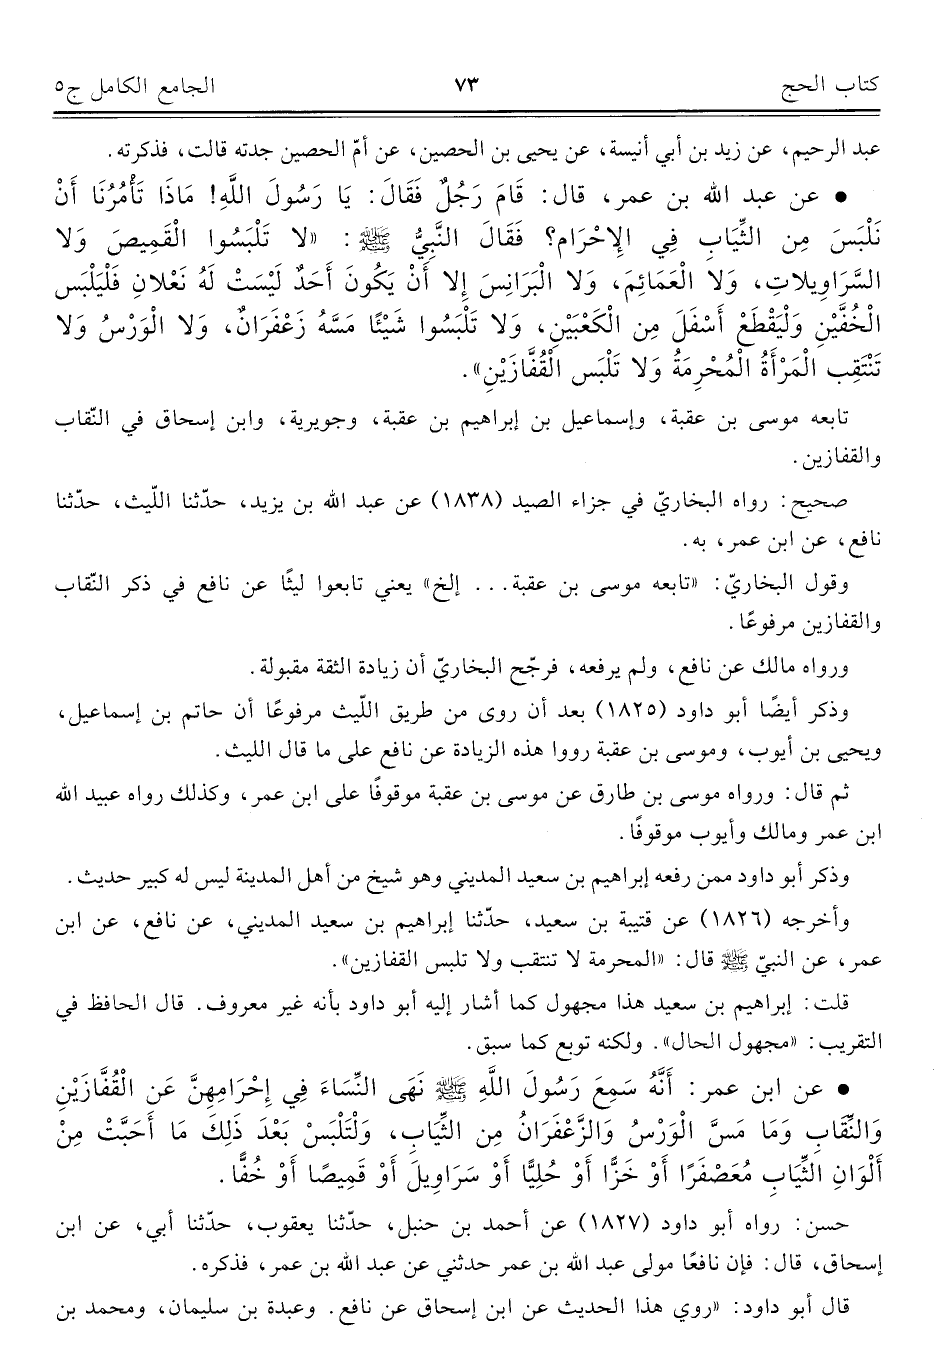 كتاب الحج ٧٣ الجامع الكامل ج٥
عبد الرحيم، عن زيد بن أبي أنيسة، عن يحيى بن الحصين، عن أمّ الحصين جدته قالت، فذكرته.
• عن عبد الله بن عمر، قال: قَامَ رَجُلٌ فَقَالَ: يَا رَسُولَ اللَّهِ! مَاذَا تَأْمُرُنَا أَنْ
نَلْبَسَ مِن الثِّيَابِ فِي الإِحْرَامِ؟ فَقَالَ النَّبِيُّ ﷺ: «لا تَلْبَسُوا الْقَمِيصَ وَلا
السَّرَاوِيلاتِ، وَلا الْعَمَائِمَ، وَلا الْبَرَانِسَ إِلا أَنْ يَكُونَ أَحَدٌ لَيْسَتْ لَهُ نَعْلانِ فَلْيَلْبَس
الْخُفَّيْنِ وَلْيَقْطَعْ أَسْفَلَ مِن الْكَعْبَيْنِ، وَلا تَلْبَسُوا شَيْئًا مَسَّهُ زَعْفَرَانٌ، وَلا الْوَرْسُ وَلا
تَنْتَقِب الْمَرْأَةُ الْمُحْرِمَةُ وَلا تَلْبَس الْقُفَّازَيْنِ».
تابعه موسى بن عقبة، وإسماعيل بن إبراهيم بن عقبة، وجويرية، وابن إسحاق في النّقاب
والقفازين.
صحيح: رواه البخاريّ في جزاء الصيد (١٨٣٨) عن عبد الله بن يزيد، حدّثنا اللّيث، حدّثنا
نافع، عن ابن عمر، به.
وقول البخاريّ: «تابعه موسى بن عقبة... إلخ» يعني تابعوا ليثًا عن نافع في ذكر النّقاب
والقفازين مرفوعًا.
ورواه مالك عن نافع، ولم يرفعه، فرجّح البخاريّ أن زيادة الثقة مقبولة.
وذكر أيضًا أبو داود (١٨٢٥) بعد أن روى من طريق اللّيث مرفوعًا أن حاتم بن إسماعيل،
ويحيى بن أيوب، وموسى بن عقبة رووا هذه الزيادة عن نافع على ما قال الليث.
ثم قال: ورواه موسى بن طارق عن موسى بن عقبة موقوفًا على ابن عمر، وكذلك رواه عبيد الله
ابن عمر ومالك وأيوب موقوفًا.
وذكر أبو داود ممن رفعه إبراهيم بن سعيد المديني وهو شيخ من أهل المدينة ليس له كبير حديث.
وأخرجه (١٨٢٦) عن قتيبة بن سعيد، حدّثنا إبراهيم بن سعيد المديني، عن نافع، عن ابن
عمر، عن النبيّ ﷺ قال: «المحرمة لا تنتقب ولا تلبس القفازين».
قلت: إبراهيم بن سعيد هذا مجهول كما أشار إليه أبو داود بأنه غير معروف. قال الحافظ في
التقريب: «مجهول الحال». ولكنه توبع كما سبق.
• عن ابن عمر: أَنَّهُ سَمِعَ رَسُولَ اللَّهِ ﷺ نَهَى النِّسَاءَ فِي إِحْرَامِهِنَّ عَن الْقُفَّازَيْنِ
وَالنِّقَابِ وَمَا مَسَّ الْوَرْسُ وَالزَّعْفَرَانُ مِن الثِّيَابِ، وَلْتَلْبَسْ بَعْدَ ذَلِكَ مَا أَحَبَّتْ مِنْ
أَلْوَانِ الثِّيَابِ مُعَصْفَرًا أَوْ خَزًّا أَوْ حُلِيًّا أَوْ سَرَاوِيلَ أَوْ قَمِيصًا أَوْ خُفًّا.
حسن: رواه أبو داود (١٨٢٧) عن أحمد بن حنبل، حدّثنا يعقوب، حدّثنا أبي، عن ابن
إسحاق، قال: فإن نافعًا مولى عبد الله بن عمر حدثني عن عبد الله بن عمر، فذكره.
قال أبو داود: «روي هذا الحديث عن ابن إسحاق عن نافع. وعبدة بن سليمان، ومحمد بن